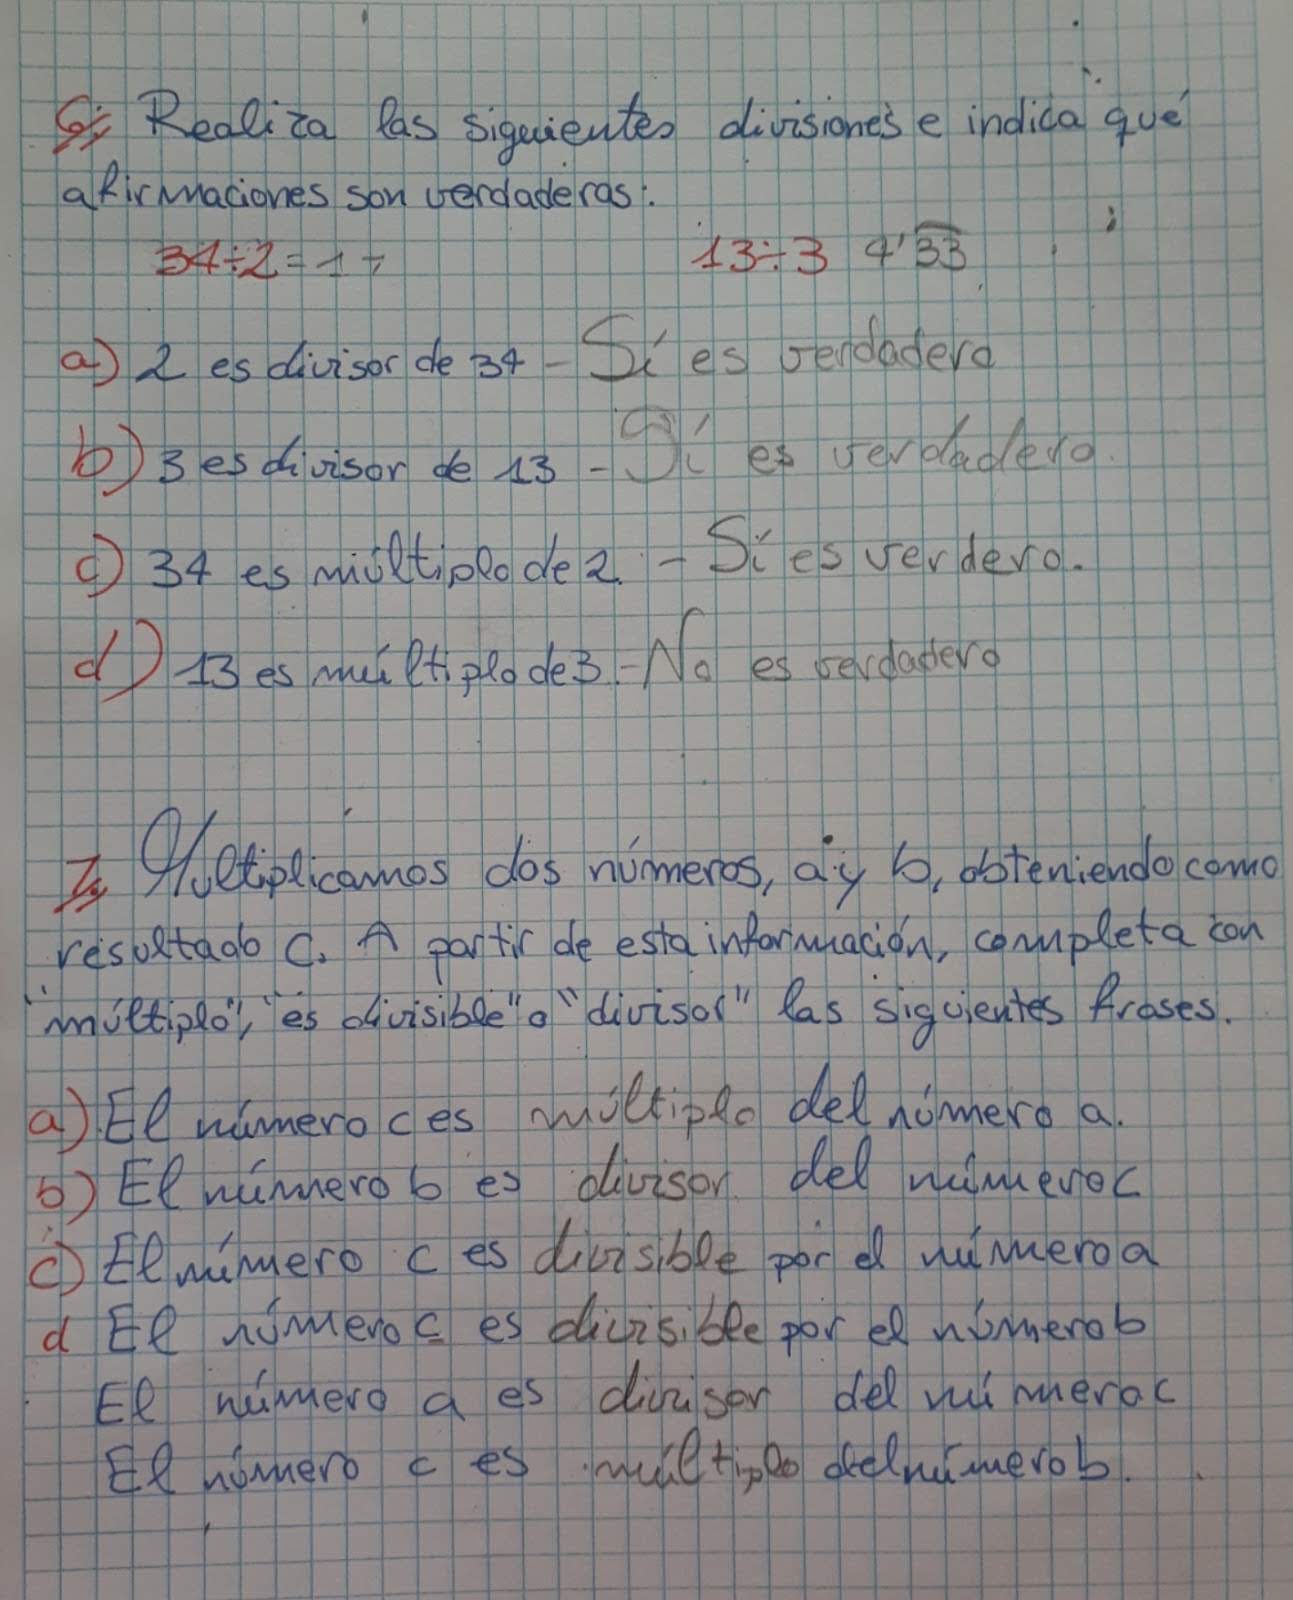 6) Realiza las siguientes divisiones e indica qué
afirmaciones son verdaderas:
34÷2=17 13÷3 4'33
a) 2 es divisor de 34 - Sí es verdadero
b) 3 es divisor de 13 - Sí es verdadero.
c) 34 es múltiplo de 2. - Sí es verdero.
d) 13 es múltiplo de 3. - No es verdadero
7) Multiplicamos dos números, a y b, obteniendo como
resultado c. A partir de esta información, completa con
"múltiplo", "es divisible" o "divisor" las siguientes frases.
a) El número c es múltiplo del número a.
b) El número b es divisor del número c
c) El número c es divisible por el número a
d El número c es divisible por el número b
El número a es divisor del número c
El número c es múltiplo del número b.